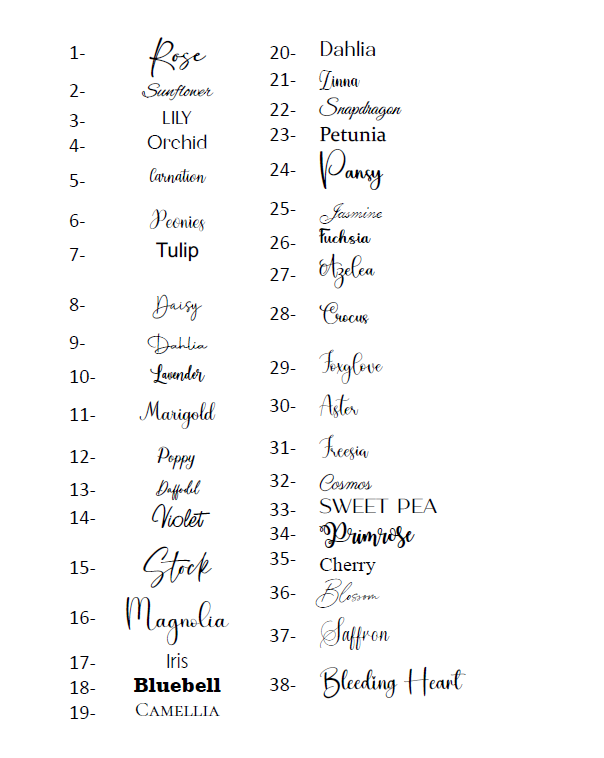 1- Rose
2- Sunflower
3- LILY
4- Orchid
5- Carnation
6- Peonies
7- Tulip
8- Daisy
9- Dahlia
10- Lavender
11- Marigold
12- Poppy
13- Daffodil
14- Violet
15- Stock
16- Magnolia
17- Iris
18- Bluebell
19- CAMELLIA
20- Dahlia
21- Zinna
22- Snapdragon
23- Petunia
24- Pansy
25- Jasmine
26- Fuchsia
27- Azelea
28- Crocus
29- Foxglove
30- Aster
31- Freesia
32- Cosmos
33- SWEET PEA
34- Primrose
35- Cherry
36- Blossom
37- Saffron
38- Bleeding Heart